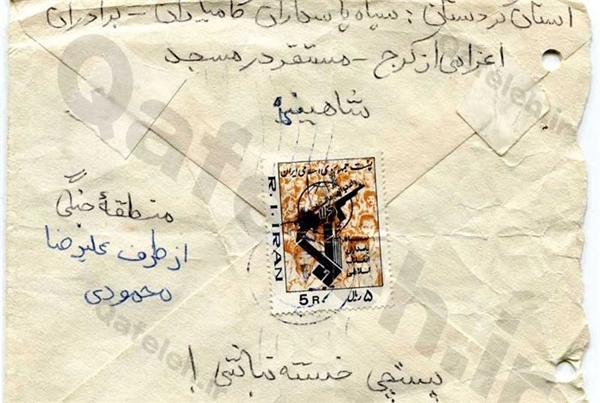 استان کردستان: سپاه پاسداران کامیاران - برادران
اعزامی از کرج - مستقر در مسجد
شاهینی
منطقهٔ جنگی
از طرف علیرضا
محمودی
پست جمهوری اسلامی ایران
R. I. IRAN
پاسداران
انقلاب
اسلامی
5 R. ۵ ریال
پستچی خسته نباشی!
Qafeleh.ir